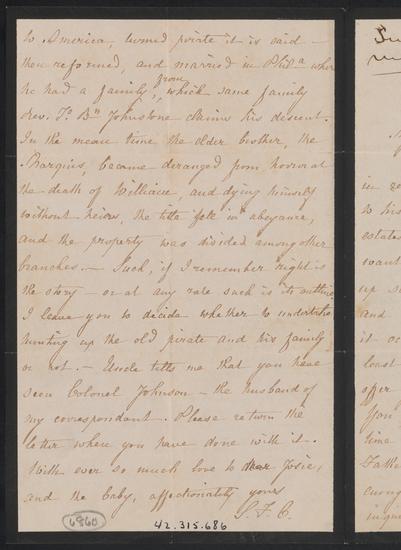 to America, turned pirate it is said –
then reformed, and married in Phil.a where
he had a family, from which same family
Rev. Jo. Bn Johnstone claims his descent.
In the mean time the older brother, the
Marquis, became deranged from horror at
the death of William, and dying himself
without heirs, the title fell in abeyance,
and the property was divided among other
branches. – Such, if I remember right is
the story – or at any rate such is its outline
I leave you to decide whether to undertake
hunting up the old pirate and his family
or not. – Uncle tells me that you have
seen Colonel Johnson – the husband of
my correspondent. Please return the
letter when you have done with it.
With ever so much love to dear Josie,
and the baby, affectionately yours
S. F. C.
6960
42.315.686
in
to his
estates
want
up
and
it
least
offer
you
time